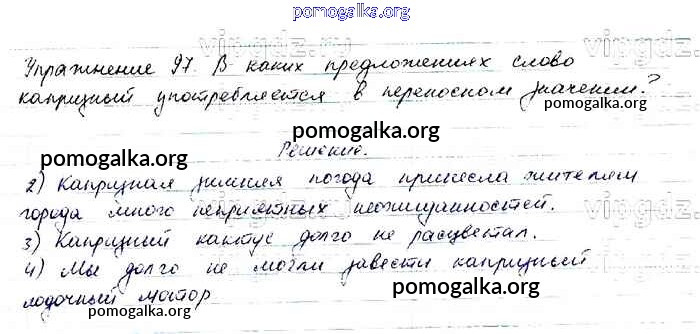 pomogalka.org
vingdz.ru
Упражнение 97. В каких предложениях слово
капризный употребляется в переносном значении?
pomogalka.org
pomogalka.org
Решение.
pomogalka.org
2) Капризная зимняя погода принесла жителям
города много неприятных неожиданностей.
vingdz
3) Капризный кактус долго не расцветал.
pomogalka.org
4) Мы долго не могли завести капризный
лодочный мотор
pomogalka.org